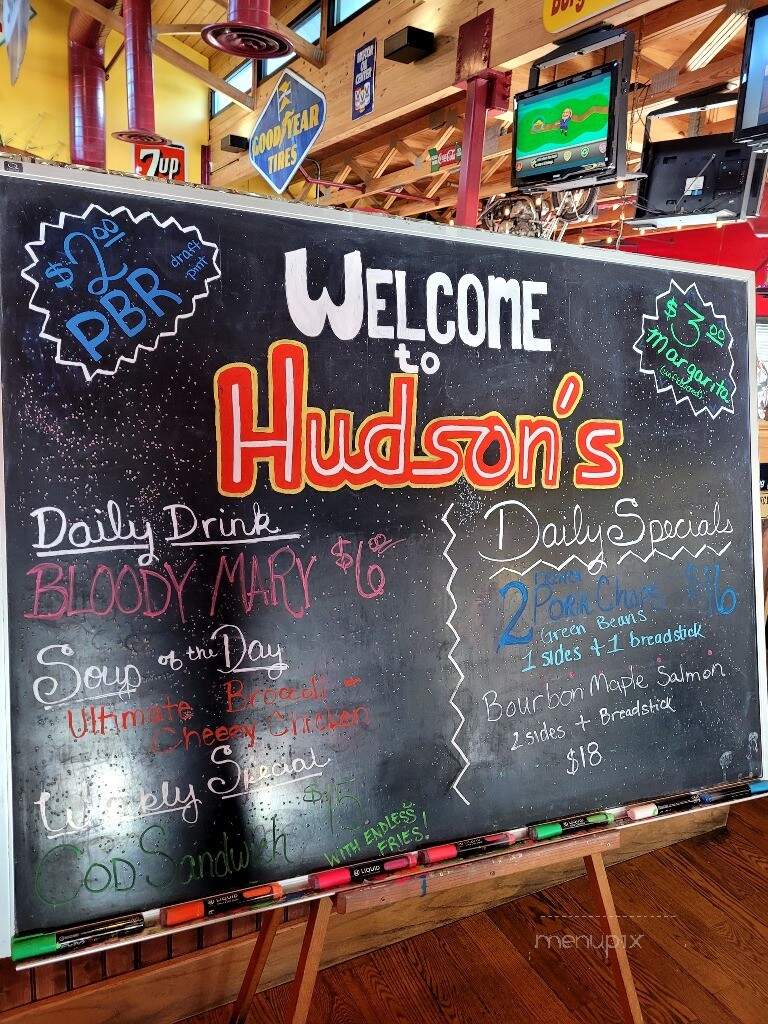 7up
GOODYEAR
TIRES
Coca-Cola
$2.00
PBR
draft
pint
WELCOME
to
Hudson's
$3.00
margarita
Daily Drink
BLOODY MARY $6.00
Soup of the Day
Ultimate Broccoli +
Cheesy Chicken
Weekly Special
$15
COD Sandwich
WITH ENDLESS
FRIES!
Daily Specials
2 Pork Chops $16
Green Beans
1 sides + 1 breadstick
Bourbon Maple Salmon
2 sides + Breadstick
$18
LIQUID
LIQUID
LIQUID
menupix